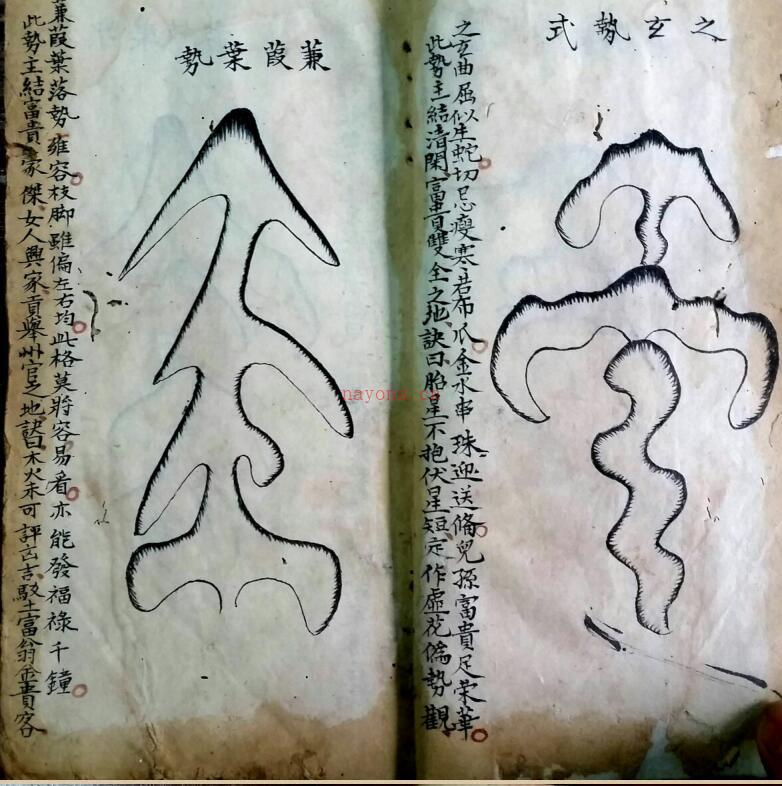 之玄勢式
之玄曲屈似生蛇切忌瘦寒若布瓜金水串珠迎送脩兒孫富貴足榮華
此勢主結清閑富貴雙全之地訣曰胎星不抱伏星短定作虛花僞勢觀
蒹葭葉勢
蒹葭葉落勢雍容枝脚雖偏左右均此格莫將容易看亦能發福祿千鐘
此勢主結富貴豪傑女人興家貢舉州官之地訣曰木火未可評凶吉土富翁金貴客
nayona.cn